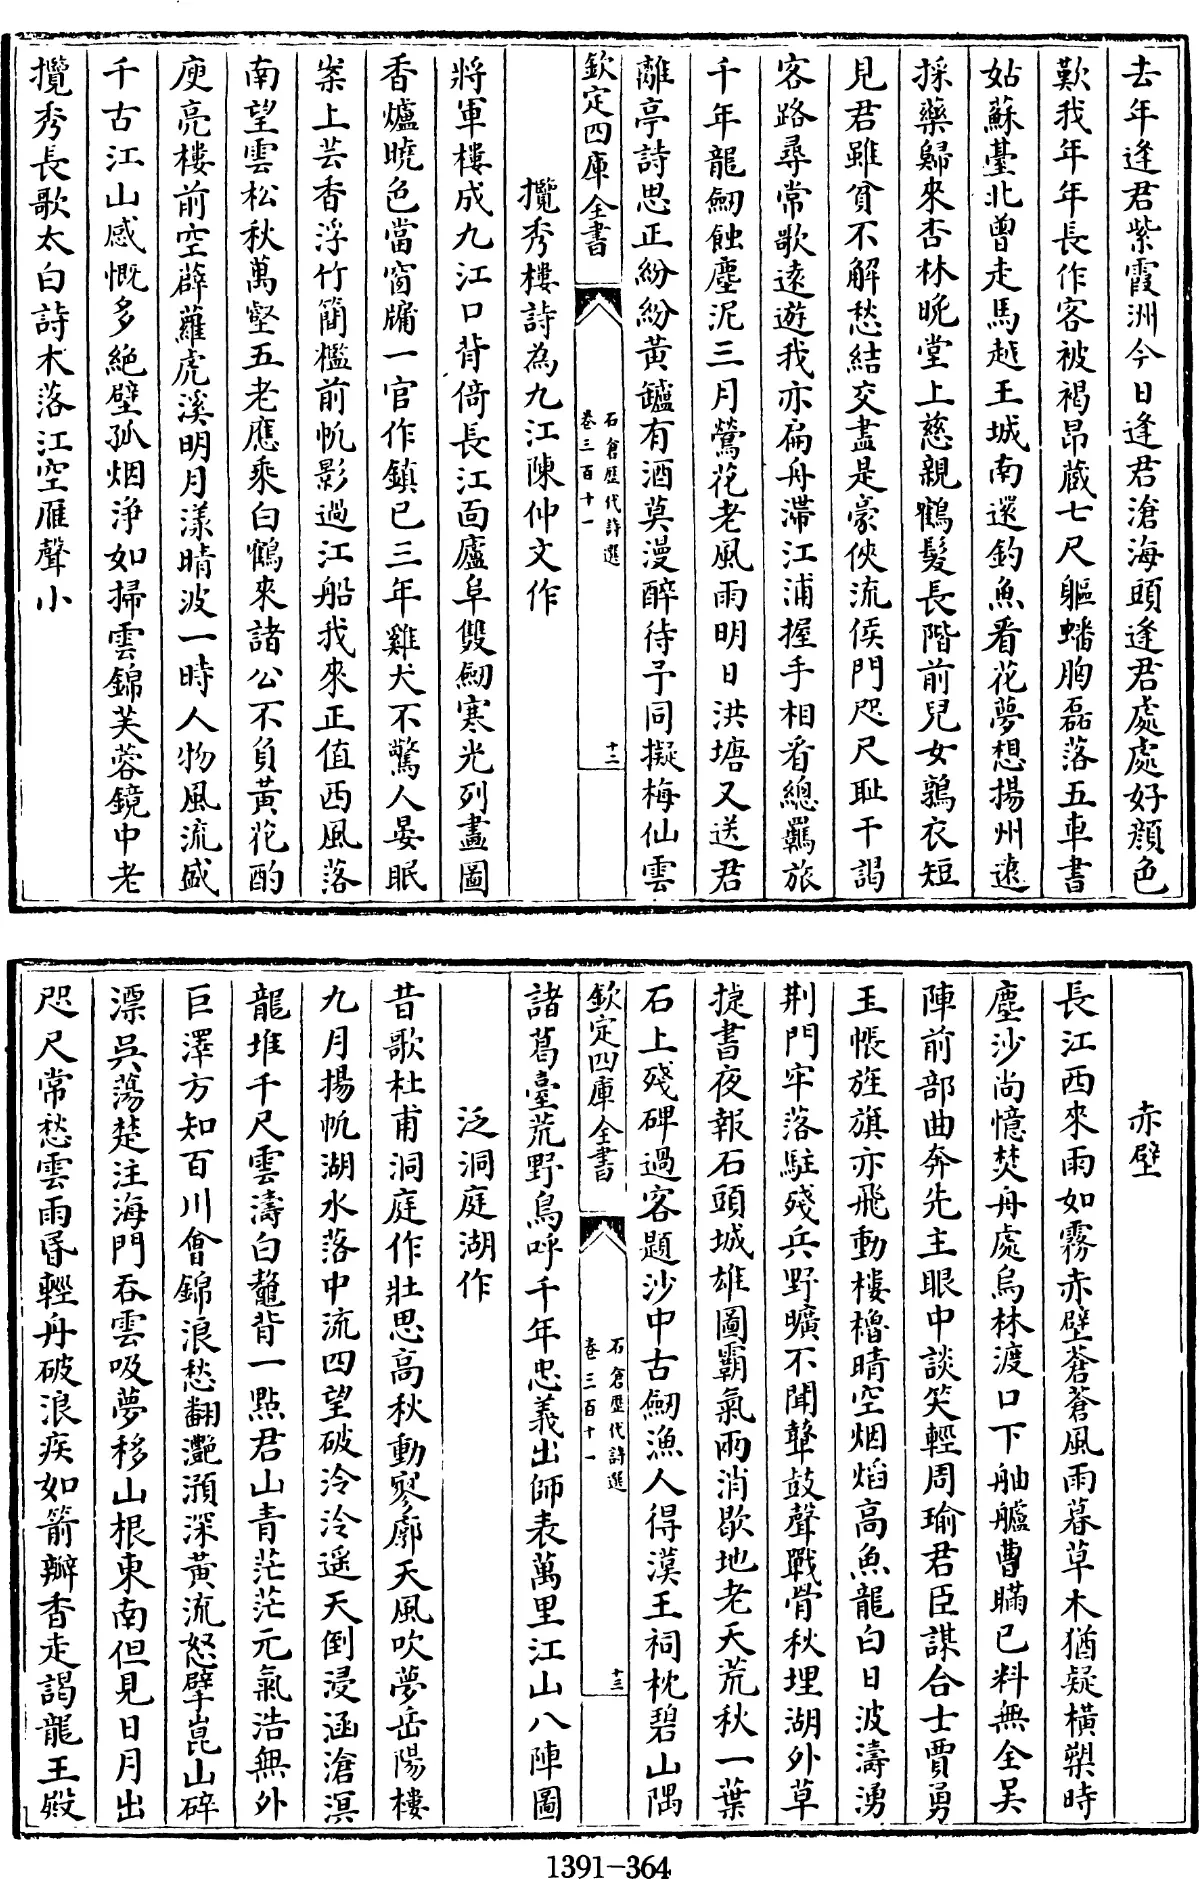 去年逢君紫霞洲今日逢君滄海頭逢君處處好顔色
歎我年年長作客被褐昂藏七尺軀蟠胸磊落五車書
姑蘇臺北曾走馬越王城南還釣魚看花夢想揚州遠
採藥歸來杏林晩堂上慈親鶴髪長階前兒女鶉衣短
見君雖貧不解愁結交盡是豪俠流侯門咫尺耻干謁
客路尋常歌逺遊我亦扁舟滯江浦握手相看總羈旅
千年龍劒蝕塵泥三月鶯花老風雨明日洪塘又送君
離亭詩思正紛紛黄鑪有酒莫漫醉待予同擬梅仙雲
欽定四庫全書
石倉歷代詩選
卷三百十一
十二
攬秀樓詩為九江陳仲文作
將軍樓成九江口背倚長江面廬阜雙劒寒光列畫圖
香爐曉色當窗牖一官作鎮已三年雞犬不驚人晏眠
案上芸香浮竹簡檻前帆影過江船我來正值西風落
南望雲松秋萬壑五老應乘白鶴來諸公不負黄花酌
庾亮樓前空薜蘿虎溪明月漾晴波一時人物風流盛
千古江山感慨多絶壁孤烟淨如掃雲錦芙蓉鏡中老
攬秀長歌太白詩木落江空雁聲小
赤壁
長江西來雨如霧赤壁蒼蒼風雨暮草木猶疑橫槊時
塵沙尚憶焚舟處烏林渡口下舳艫曹瞞已料無全吳
陣前部曲奔先主眼中談笑輕周瑜君臣謀合士賈勇
玉帳旌旗亦飛動樓櫓晴空烟焰高魚龍白日波濤湧
荆門牢落駐殘兵野曠不聞鼙鼓聲戰骨秋埋湖外草
捷書夜報石頭城雄圖霸氣兩消歇地老天荒秋一葉
石上殘碑過客題沙中古劒漁人得漢王祠枕碧山隅
欽定四庫全書
石倉歷代詩選
卷三百十一
十三
諸葛臺荒野鳥呼千年忠義出師表萬里江山八陣圖
泛洞庭湖作
昔歌杜甫洞庭作壯思高秋動寥廓天風吹夢岳陽樓
九月揚帆湖水落中流四望破泠泠遥天倒浸涵滄溟
龍堆千尺雲濤白鼇背一點君山青茫茫元氣浩無外
巨澤方知百川會錦浪愁翻灔澦深黄流怒擘崑山碎
漂吳蕩楚注海門吞雲吸夢移山根東南但見日月出
咫尺常愁雲雨昏輕舟破浪疾如箭瓣香走謁龍王殿
1391-364